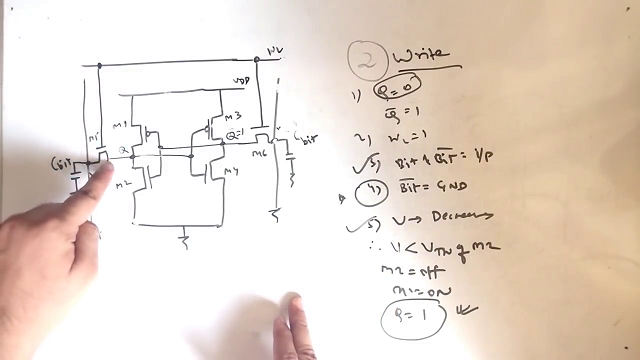 WL
VDD
M5
M1
M3
Q
Q̅=1
M6
Cbit
Cbit
M2
M4
2 Write
1) Q=0
Q̅ = 1
2) WL=1
3) Bit & B̅i̅t̅ = I/P
4) B̅i̅t̅ = GND
5) V → Decreases
∴ V < VTN of M2
M2 = off
M1 = ON
Q = 1